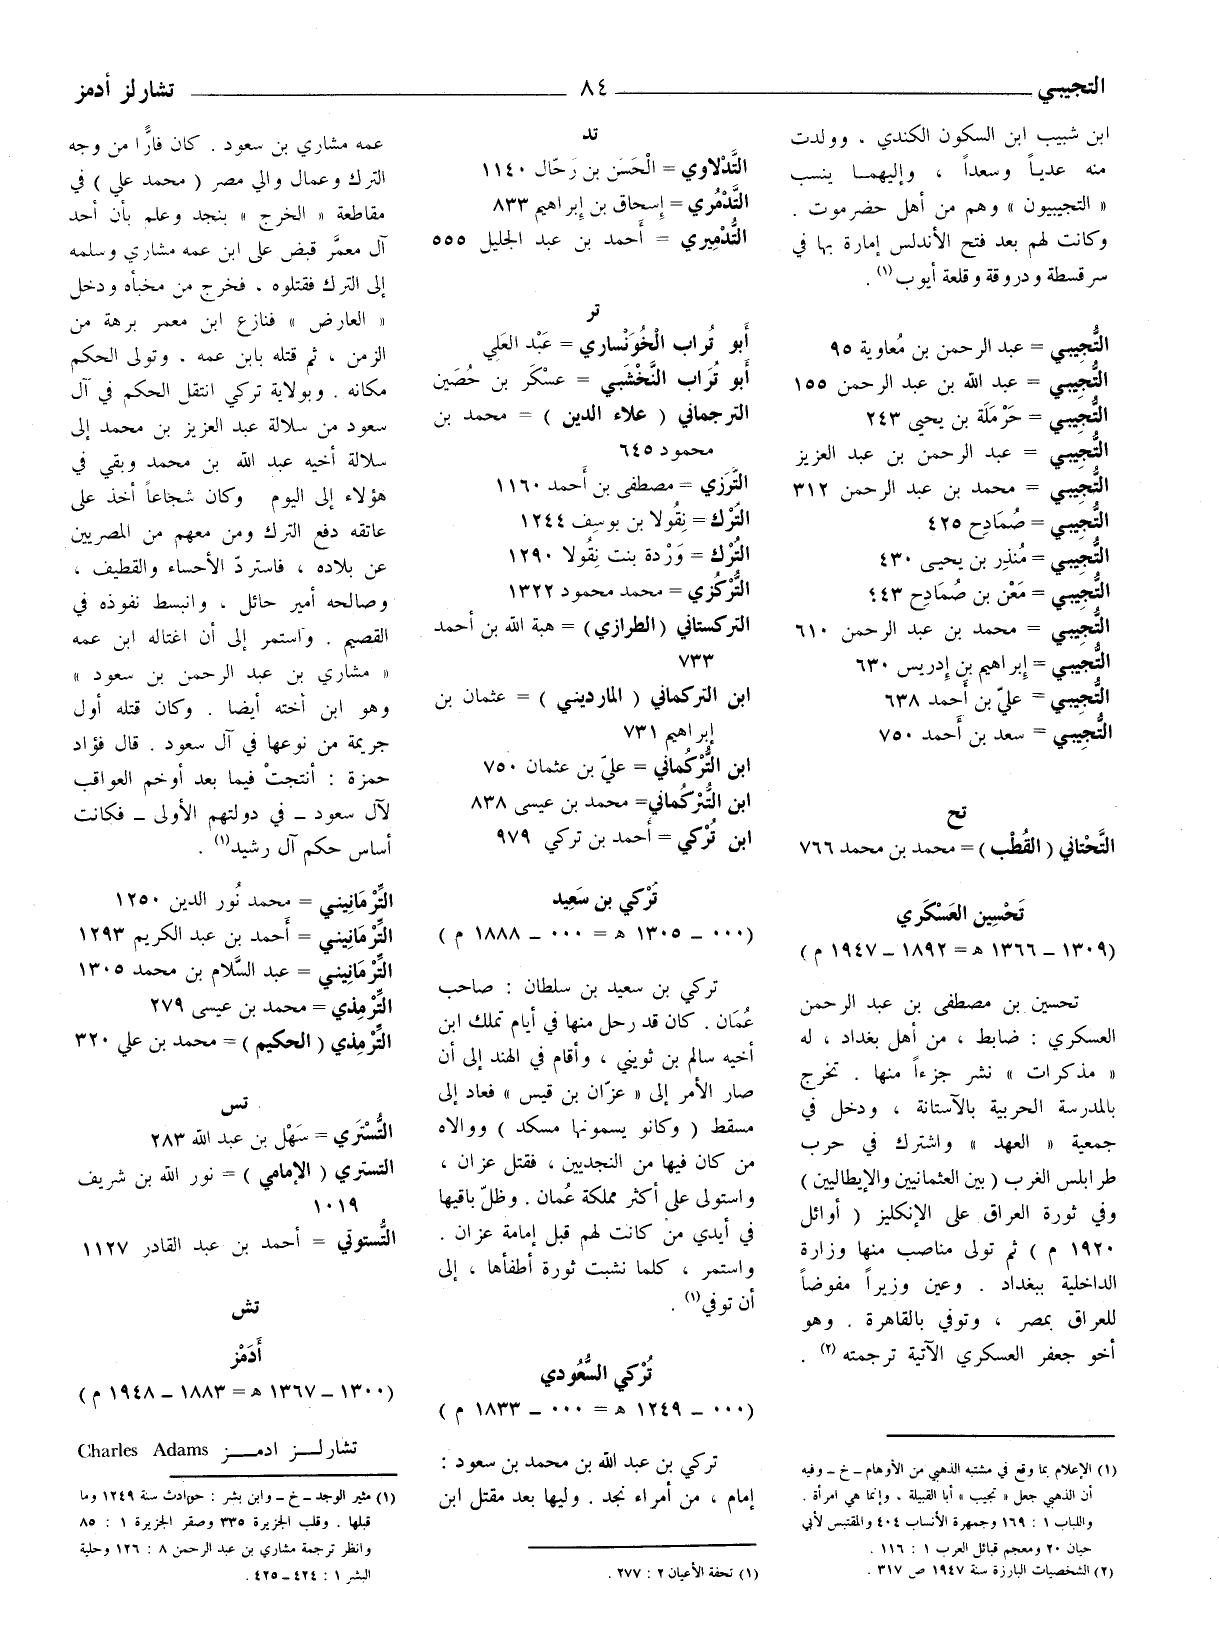 التجيبي ٨٤ تشارلز أدمز
ابن شبيب ابن السكون الكندي . وولدت
منه عدياً وسعداً ، وإليهما ينسب
« التجيبيون » وهم من أهل حضرموت .
وكانت لهم بعد فتح الأندلس إمارة بها في
سرقسطة ودروقة وقلعة أيوب(١).
التُّجِيبي = عبد الرحمن بن مُعاوية ٩٥
التُّجِيبي = عبد الله بن عبد الرحمن ١٥٥
التُّجِيبي = حَرْمَلَة بن يحيى ٢٤٣
التُّجِيبي = عبد الرحمن بن عبد العزيز
التُّجِيبي = محمد بن عبد الرحمن ٣١٢
التُّجِيبي = صُمَادِح ٤٢٥
التُّجِيبي = مُنذِر بن يحيى ٤٣٠
التُّجِيبي = مَعْن بن صُمَادِح ٤٤٣
التُّجِيبي = محمد بن عبد الرحمن ٦١٠
التُّجِيبي = إبراهيم بن إدريس ٦٣٠
التُّجِيبي = عليّ بن أَحمد ٦٣٨
التُّجِيبي = سعد بن أَحمد ٧٥٠
تح
التَّحْتاني ( القُطْب ) = محمد بن محمد ٧٦٦
تَحْسِين العَسْكَري
(١٣٠٩ – ١٣٦٦ ه = ١٨٩٢ – ١٩٤٧ م )
تحسين بن مصطفى بن عبد الرحمن
العسكري : ضابط ، من أهل بغداد ، له
« مذكرات » نشر جزءاً منها . تخرج
بالمدرسة الحربية بالآستانة ، ودخل في
جمعية « العهد » واشترك في حرب
طرابلس الغرب ( بين العثمانيين والإيطاليين )
وفي ثورة العراق على الإنكليز ( أوائل
١٩٢٠ م ) ثم تولى مناصب منها وزارة
الداخلية ببغداد . وعين وزيراً مفوضاً
للعراق بمصر ، وتوفي بالقاهرة . وهو
أخو جعفر العسكري الآتية ترجمته (٢) .
(١) الإعلام بما وقع في مشتبه الذهبي من الأوهام – خ – وفيه
أن الذهبي جعل « تجيب » أبا القبيلة . وإنما هي امرأة .
واللباب ١ : ١٦٩ وجمهرة الأنساب ٤٠٤ والمقتبس لأبي
حيان ٢٠ ومعجم قبائل العرب ١ : ١١٦ .
(٢) الشخصيات البارزة سنة ١٩٤٧ ص ٣١٧ .
تد
التَّدْلاوي = الْحَسَن بن رَحّال ١١٤٠
التَّدْمُري = إسحاق بن إبراهيم ٨٣٣
التُّدْمِيري = أحمد بن عبد الجليل ٥٥٥
تر
أَبو تُراب الْخُونْساري = عَبْد العَلي
أَبو تُرَاب النَّخْشَبي = عسْكَر بن حُصَين
الترجماني ( علاء الدين ) = محمد بن
محمود ٦٤٥
التَّرَزي = مصطفى بن أَحمد ١١٦٠
التُرْك = نِقُولا بن يوسِف ١٢٤٤
التُرْك = وَرْدة بنت نِقُولا ١٢٩٠
التُّرْكُزي = محمد محمود ١٣٢٢
التركستاني (الطرازي) = هبة الله بن أحمد
٧٣٣
ابن التركماني ( المارديني ) = عثمان بن
إبراهيم ٧٣١
ابن التُّرْكُماني = عليّ بن عثمان ٧٥٠
ابن التُّرْكُماني= محمد بن عيسى ٨٣٨
ابن تُرْكي = أَحمد بن تركي ٩٧٩
تُرْكي بن سَعِيد
(٠٠٠ – ١٣٠٥ ه = ٠٠٠ – ١٨٨٨ م )
تركي بن سعيد بن سلطان : صاحب
عُمَان . كان قد رحل منها في أيام تملك ابن
أخيه سالم بن ثويني ، وأقام في الهند إلى أن
صار الأمر إلى « عزّان بن قيس » فعاد إلى
مسقط ( وكانو يسمونها مسكد ) ووالاه
من كان فيها من النجديين ، فقتل عزان ،
واستولى على أكثر مملكة عُمان . وظلّ باقيها
في أيدي منْ كانت لهم قبل إمامة عزان .
واستمر ، كلما نشبت ثورة أطفأها ، إلى
أن توفي(١) .
تُرْكي السُّعُودي
(٠٠٠ – ١٢٤٩ ه = ٠٠٠ – ١٨٣٣ م )
تركي بن عبد الله بن محمد بن سعود :
إمام ، من أمراء نجد . وليها بعد مقتل ابن
(١) تحفة الأعيان ٢ : ٢٧٧ .
عمه مشاري بن سعود . كان فارًّا من وجه
الترك وعمال والي مصر ( محمد علي ) في
مقاطعة « الخرج » بنجد وعلم بأن أحد
آل معمَّر قبض على ابن عمه مشاري وسلمه
إلى الترك فقتلوه . فخرج من مخبأه ودخل
« العارض » فنازع ابن معمر برهة من
الزمن ، ثم قتله بابن عمه . وتولى الحكم
مكانه . وبولاية تركي انتقل الحكم في آل
سعود من سلالة عبد العزيز بن محمد إلى
سلالة أخيه عبد الله بن محمد وبقي في
هؤلاء إلى اليوم وكان شجاعاً أخذ على
عاتقه دفع الترك ومن معهم من المصريين
عن بلاده ، فاستردّ الأحساء والقطيف ،
وصالحه أمير حائل ، وانبسط نفوذه في
القصيم . واستمر إلى أن اغتاله ابن عمه
« مشاري بن عبد الرحمن بن سعود »
وهو ابن أخته أيضا . وكان قتله أول
جريمة من نوعها في آل سعود . قال فؤاد
حمزة : أنتجتْ فيما بعد أوخم العواقب
لآل سعود – في دولتهم الأولى – فكانت
أساس حكم آل رشيد(١) .
التِّرْمَانِيني = محمد نُور الدين ١٢٥٠
التِّرْمَانِيني = أَحمد بن عبد الكريم ١٢٩٣
التِّرْمَانِيني = عبد السَّلام بن محمد ١٣٠٥
التِّرْمِذي = محمد بن عيسى ٢٧٩
التِّرْمِذي ( الحكيم ) = محمد بن علي ٣٢٠
تس
التُّسْتَري = سَهْل بن عبد الله ٢٨٣
التستري ( الإمامي ) = نور الله بن شريف
١٠١٩
التُّستوتي = أحمد بن عبد القادر ١١٢٧
تش
أَدَمْز
(١٣٠٠ – ١٣٦٧ ه = ١٨٨٣ – ١٩٤٨ م )
تشارلـز ادمـــز Charles Adams
(١) مثير الوجد – خ – وابن بشر : حوادث سنة ١٢٤٩ وما
قبلها . وقلب الجزيرة ٣٣٥ وصقر الجزيرة ١ : ٨٥
وانظر ترجمة مشاري بن عبد الرحمن ٨ : ١٢٦ وحلية
البشر ١ : ٤٢٤ – ٤٢٥ .